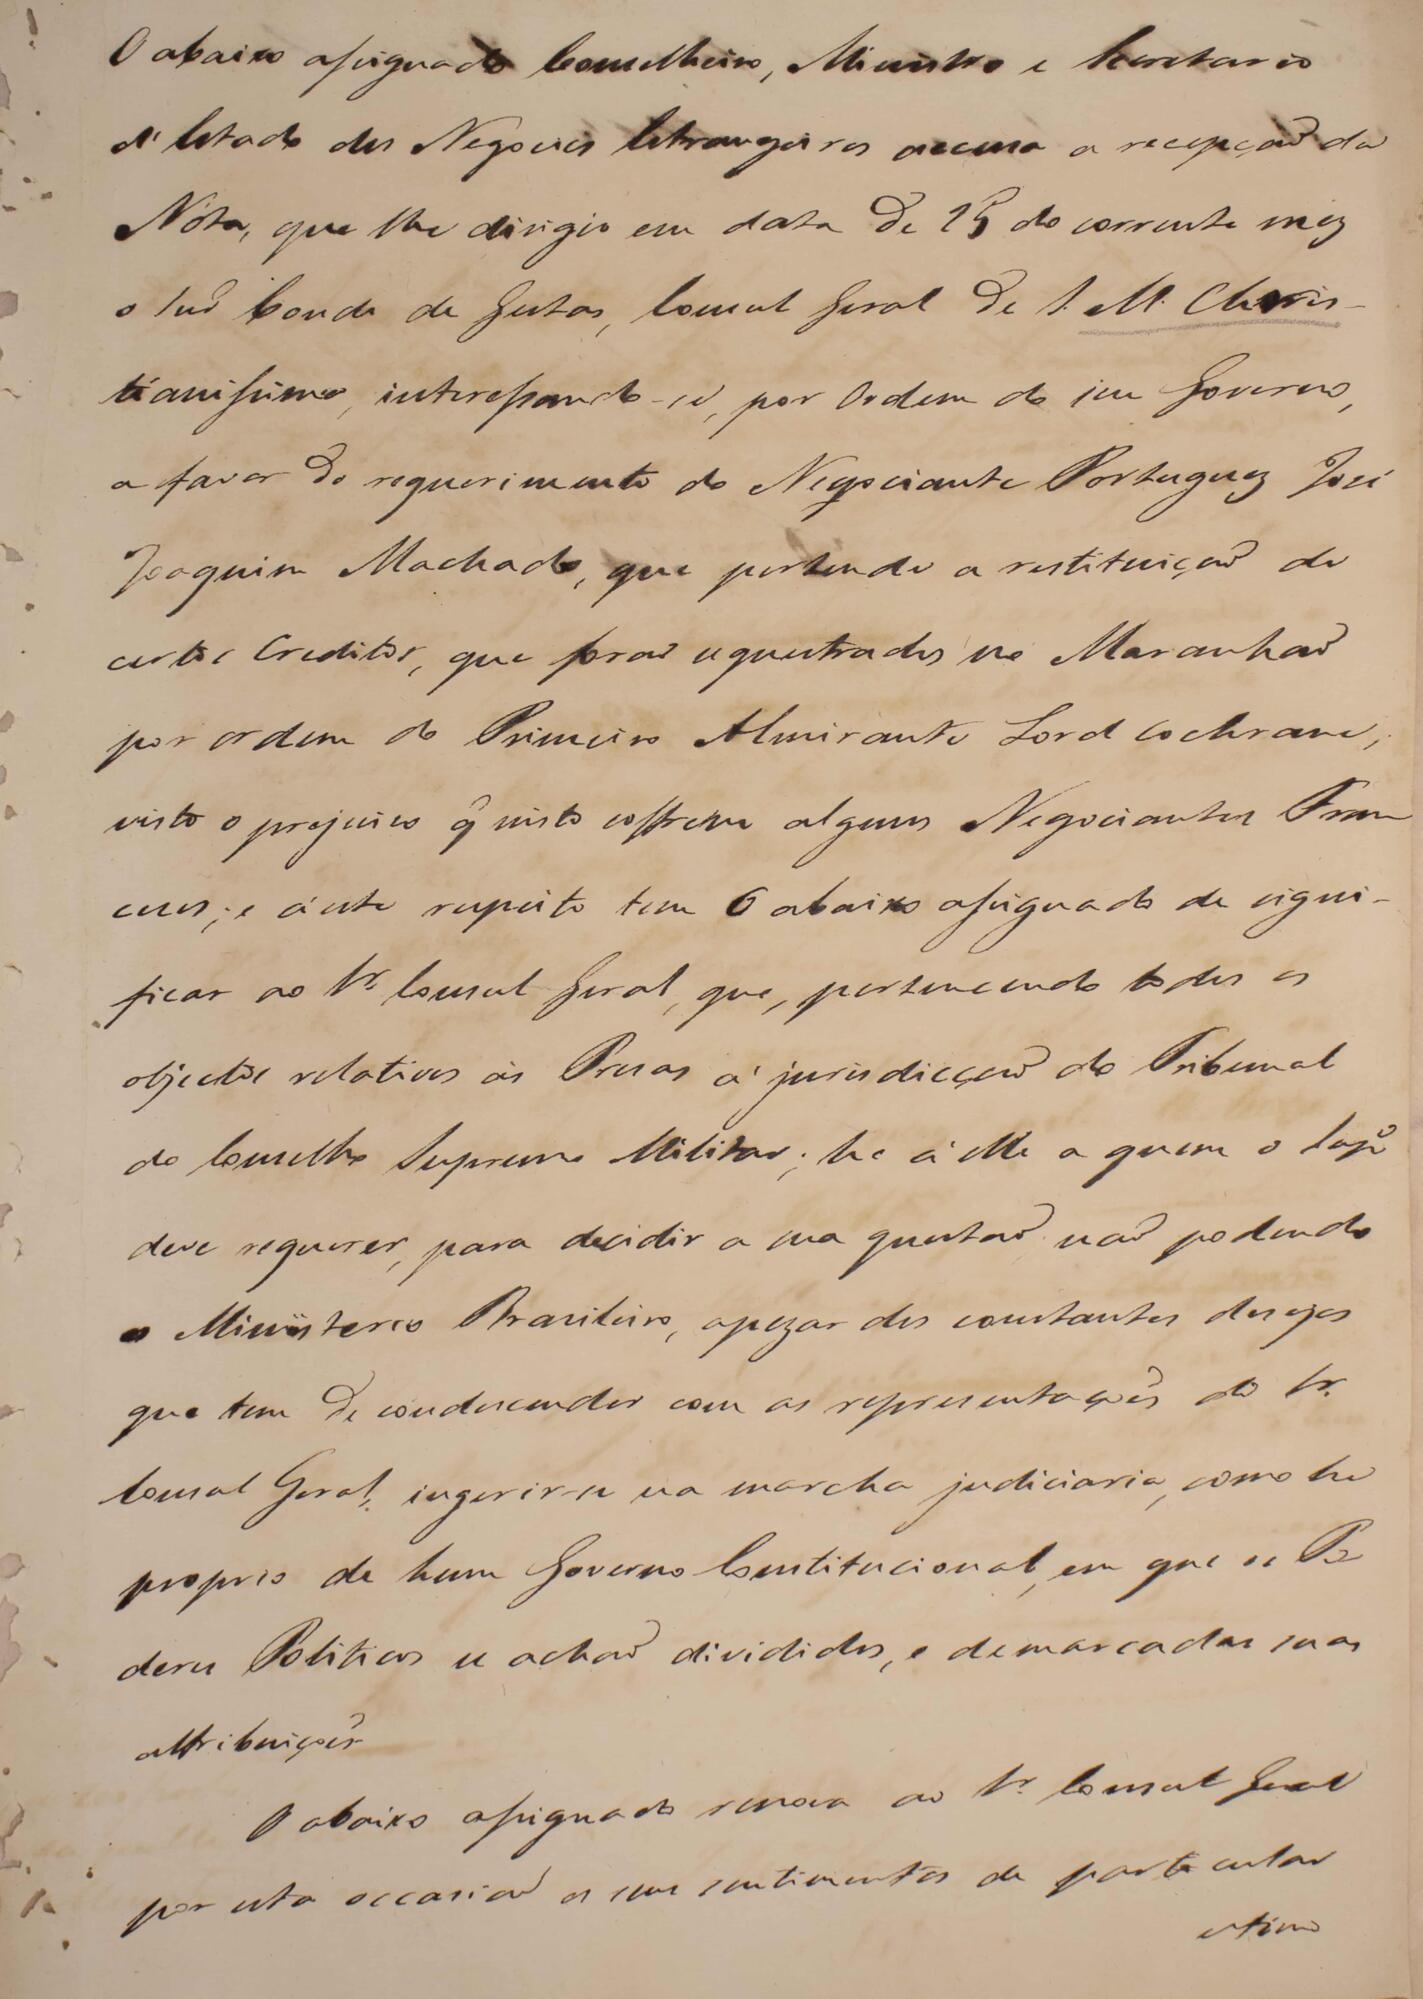 O abaixo assignado Conselheiro, Ministro e Secretario
d'Estado dos Negocios Estrangeiros accusa a recepção da
Nota, que lhe dirigio em data de 15 do corrente mez
o Conde de Gestas, Consul Geral de S. M. Chris-
tianissima, interessando-se, por Ordem do seu Governo,
a favor do requerimento do Negociante Portuguez José
Joaquim Machado, que pertende a restituição de
certos Creditos, que forao sequestrados no Maranhaõ
por ordem do Primeiro Almirante Lord Cochrane,
visto o prejuiso q̃ nisto soffrem alguns Negociantes Fran
ceses; e á este respeito tem O abaixo assignado de signi-
ficar ao Sr. Consul Geral, que, pertencendo todos os
objectos relativos ás Presas á jurisdicçaõ do Tribunal
do Conselho Supremo Militar; he á elle a quem o Supe
deve requerer, para decidir a sua questaõ naõ podendo
o Ministerio Brasileiro, apezar dos constantes desejos
que tem de condescender com as representações do Sr.
Consul Geral, ingerir-se na marcha judiciaria, como he
proprio de hum Governo Constitucional, em que os Po
deres Politicos se achaõ divididos, e demarcadas suas
attribuições
O abaixo assignado renova ao Sr. Consul Geral
por esta occasiaõ os seus sentimentos de particular
estima